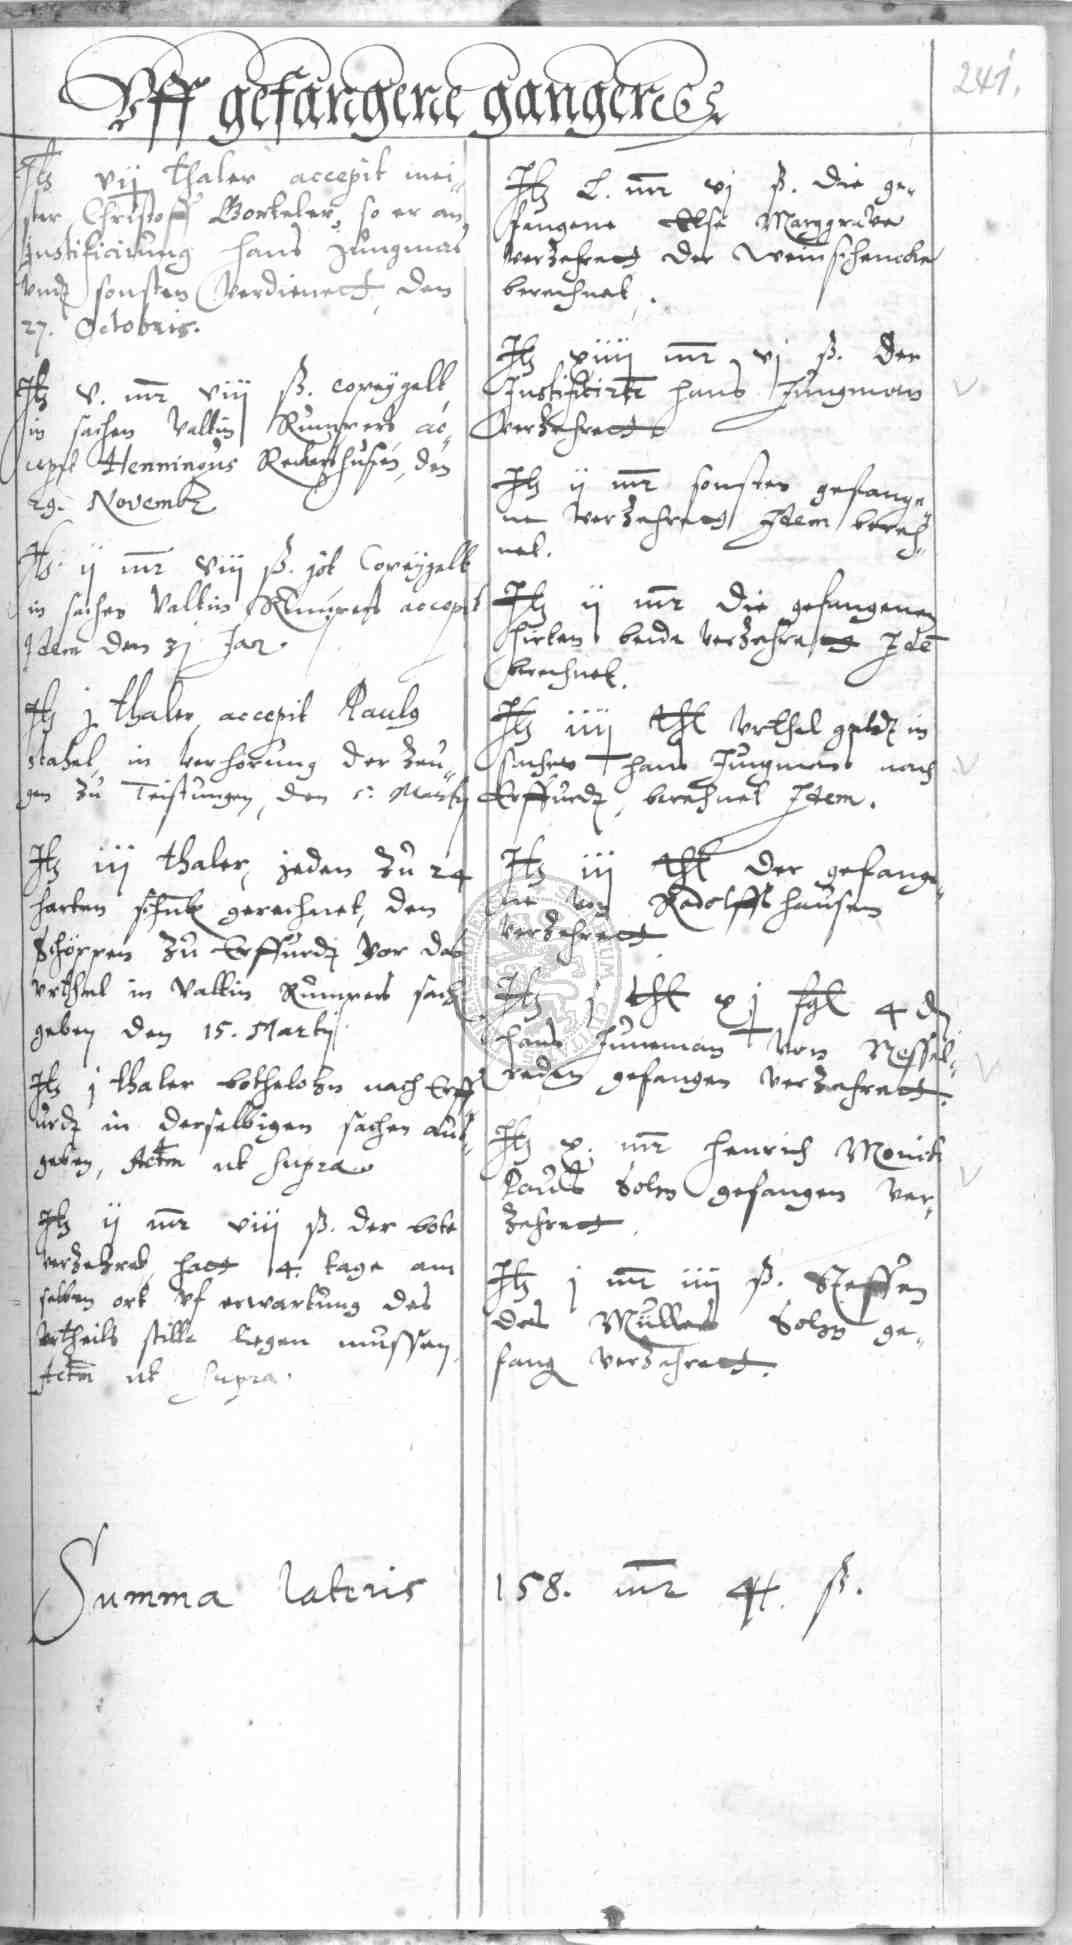 241.
Vff gefangene gangen
Itz vij thaler accepit mei-
ster Christoff Borkeler, so er an
Justificirung Hans Jungmans
vnd sonsten verdienett, den
27. Octobris.
Itz v. mr viij ß. copeygelt
in sachen Valtin Rumpers ac-
cepit Henningus den
29. Novemb
Itz ij mr viij ß. Copeygelt
in sachen Valtin Rumpers accepit
Idem den 31 Jar.
Itz j thaler, accepit Paulg
Stahel, in verhorung der zeu-
gen zu Teistungen, den 5. Martij
Itz iij thaler, jeden zu 24
harten gerechnet, den
Schöppen zu Erffurdt vor das
vrthel in Valtin Rumpers sach
geben den 15. Martij
Itz j thaler bothelohn nach Erff-
urdt in derselbigen sachen aus-
geben, Actm ut supra.
Itz ij mr viij ß. der bote
verzehret, hatt 4. tage am
selben ort vf erwartung des
vrtheils stille liegen mussen,
Actm ut supra.
Itz L. mr vj ß. die ge-
fangene Else Marggrave
verzehrett der Weinschencke
berechnet.
Itz xiiij mr vj ß. der
Justificirte Hans Jungman
verzehrett.
Itz ij mr sonsten gefange-
ne verzehrett Idem berech-
net.
Itz ij mr die gefangenen
hirten beide verzehrett Idē
berechnet.
Itz iiij thl vrthel geldt in
sachen Hans Jungmans nach
Erffurdt, berechnet Idem.
Itz iij thl der gefange-
ne von Radolffshausen
verzehrett
Itz j thl xj fgl 4 d
Hans Juneman von Nessel-
reden gefangen verzehrett.
Itz x. mr Henrich Monich
Pauls Sohn gefangen ver-
zehrett.
Itz j mr iiij ß. Steffen
des Mullers Sohn ge-
fang verzehrett.
Summa lateris 158. mr 4. ß.